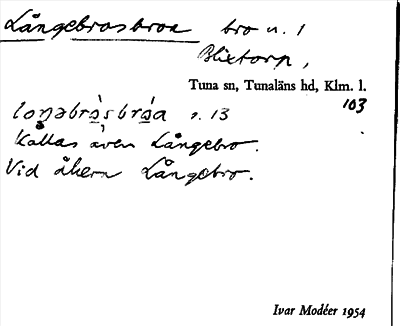 Långebrosbron bro n. 1
Blixtorp,
Tuna sn, Tunaläns hd, Klm. l.
103
loŋəbròsbróa s. 13
Kallas även Långebro.
Vid åkern Långebro.
Ivar Modéer 1954